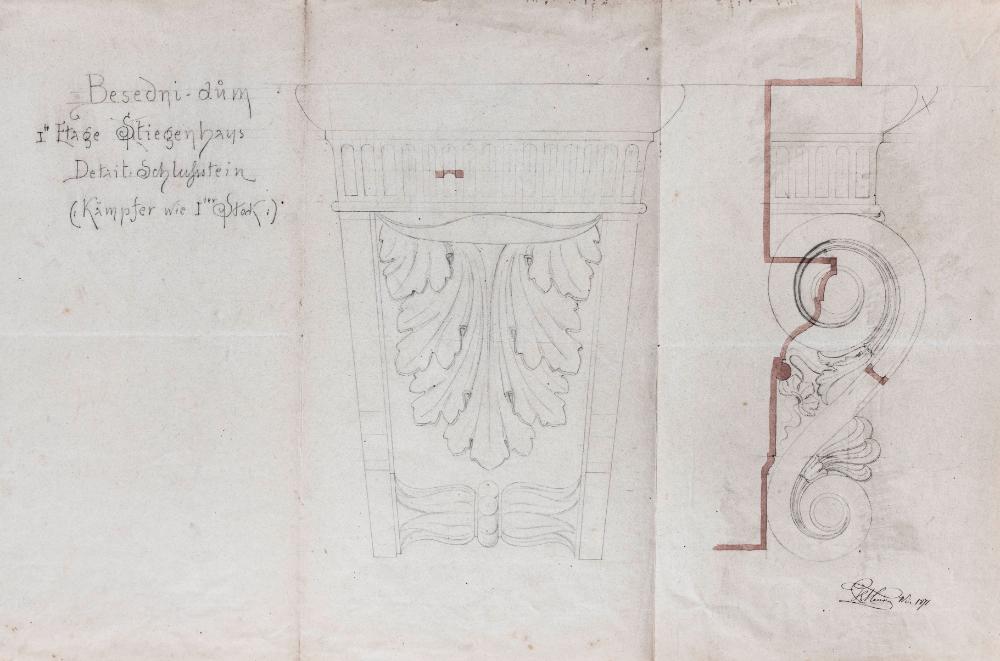 Besedni-dům
Ite Etage Stiegenhaus
Detail-Schlußstein
(: Kämpfer wie Iter Stock :)
1871